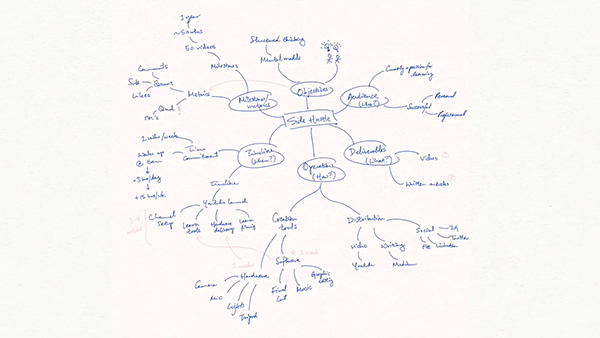 1 year
~50 wks
50 videos
Milestones
Structured thinking
Mental models
Objectives
Curiosity + passion for
learning
Audience
(Who?)
Successful
Personal
Professional
Comments
Subs
Likes
Quant
Metrics
Qual
Milestones/
metrics
Side Hustle
Timeline
(When?)
Time
Commitment
Wake up
@ 5am
+3 hrs/day
+15 hrs/wk
Timeline
Youtube launch
Channel
Setup
Learn
tools
Hardware
delivery
Learn
Operations
(How?)
Deliverables
(What?)
Videos
Written articles
Creation
tools
Hardware
Camera
Mic
Lights
Tripod
Software
Final
Cut
Music
Graphic
editing
Distribution
Video
Youtube
Writing
Medium
Social
IG
Twitter
FB
Linkedin